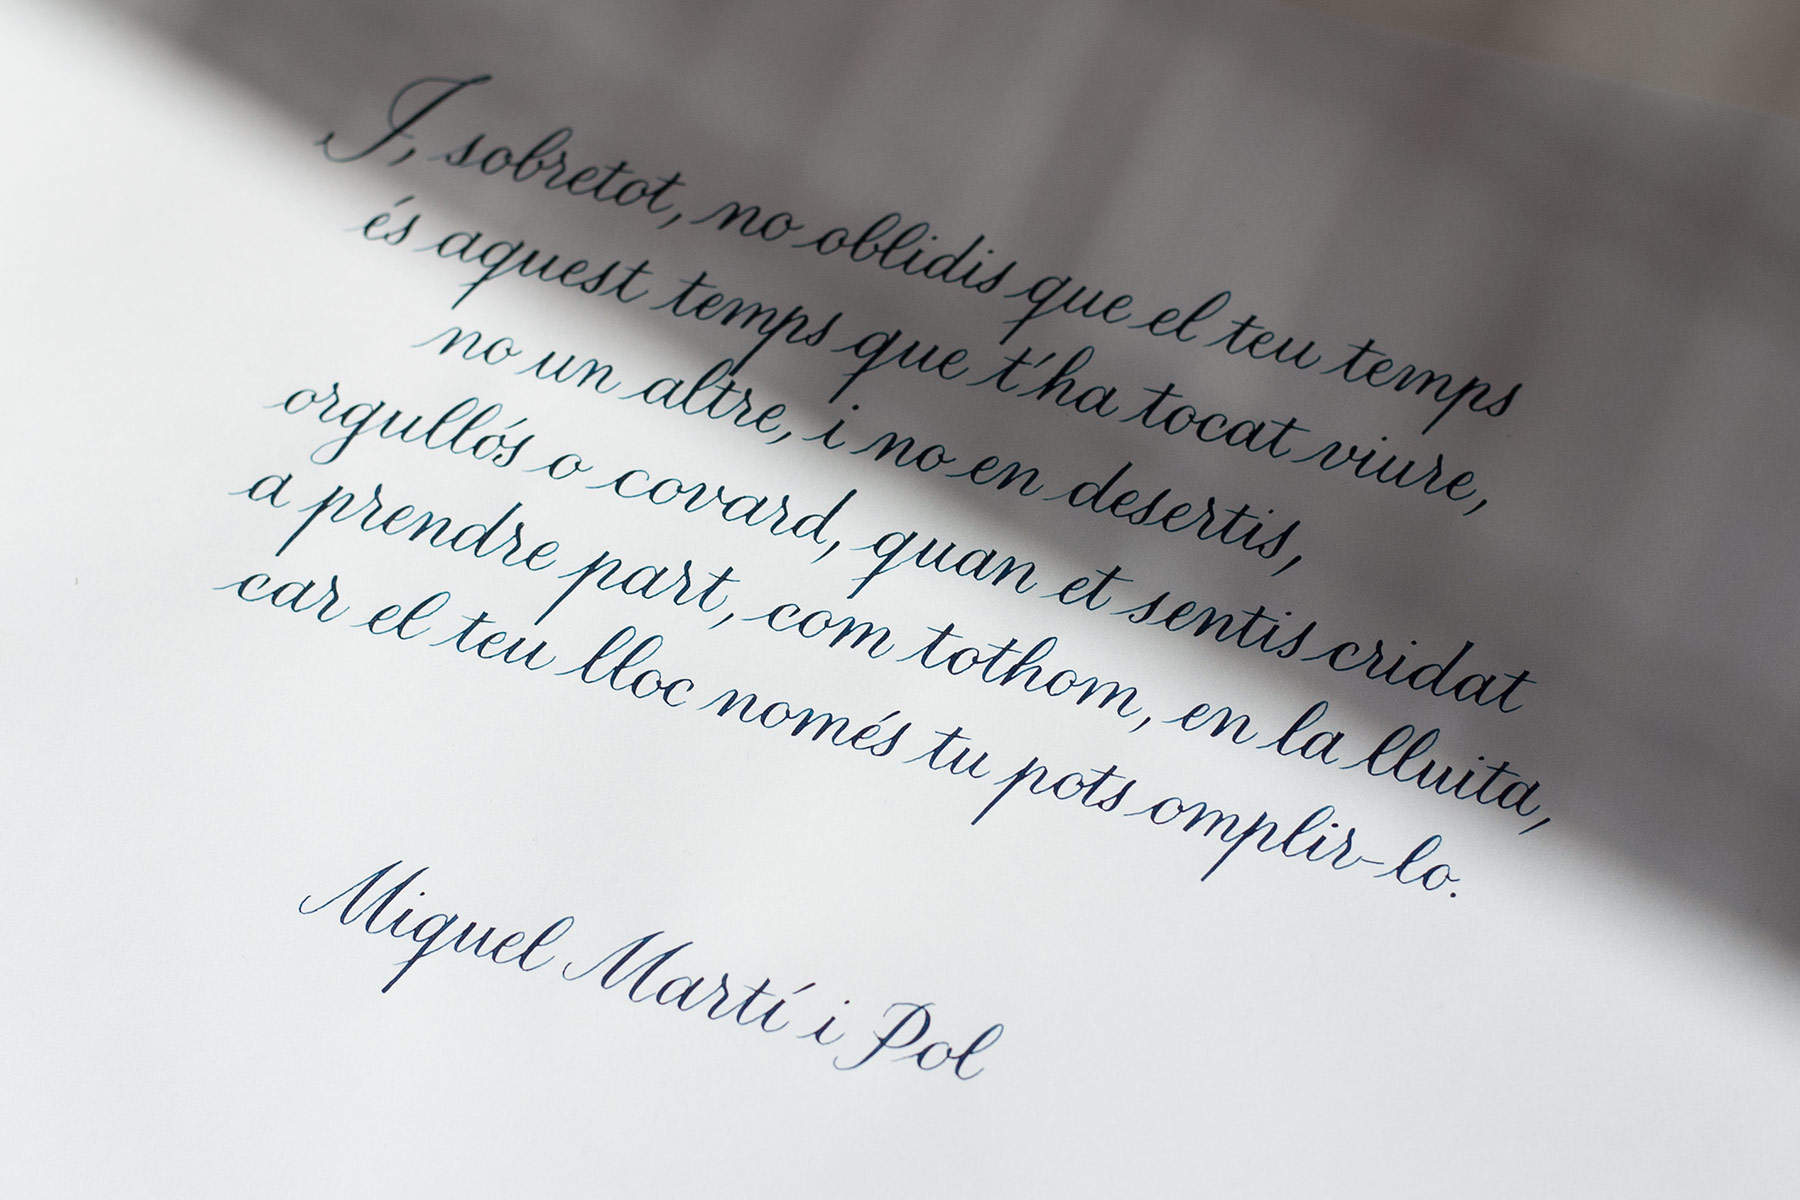 I, sobretot, no oblidis que el teu temps
és aquest temps que t'ha tocat viure,
no un altre, i no en desertis,
orgullós o covard, quan et sentis cridat
a prendre part, com tothom, en la lluita,
car el teu lloc només tu pots omplir-lo.
Miquel Martí i Pol